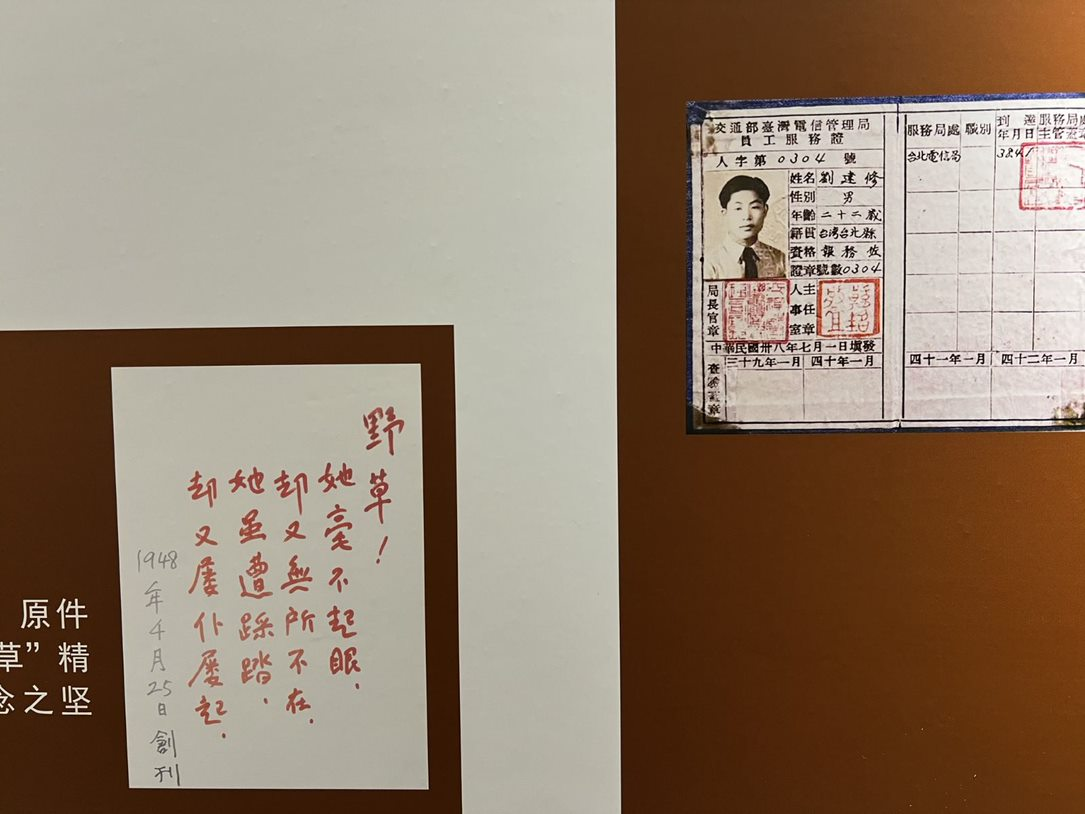 野草！
她毫不起眼，
却又無所不在，
她虽遭踩踏，
却又屡仆屡起．
1948年4月25日創刊
原件
草”精
念之坚
交通部臺灣電信管理局
員工服務證
人字第0304號
姓名 劉建修
性別 男
年齡 二十二歲
籍貫 台湾台北縣
資格 報務佐
證章號數0304
局長官章
人事室
主任章
中華民國卅八年七月一日填發
三十九年一月 四十年一月
服務局處 職別 到 年月日 服務局處 主管
台北電信局 38.4.1
四十一年一月 四十二年一月